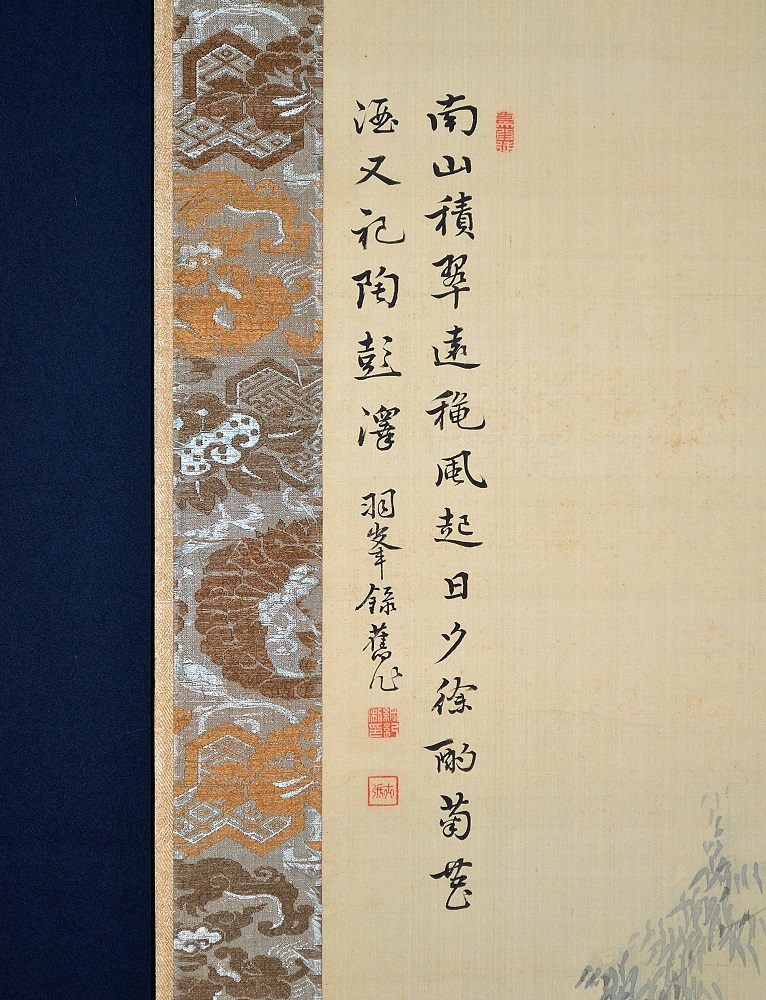 南山積翠遠穐風起日夕徐酌菊花
酒又祀陶彭澤 羽峯録舊作